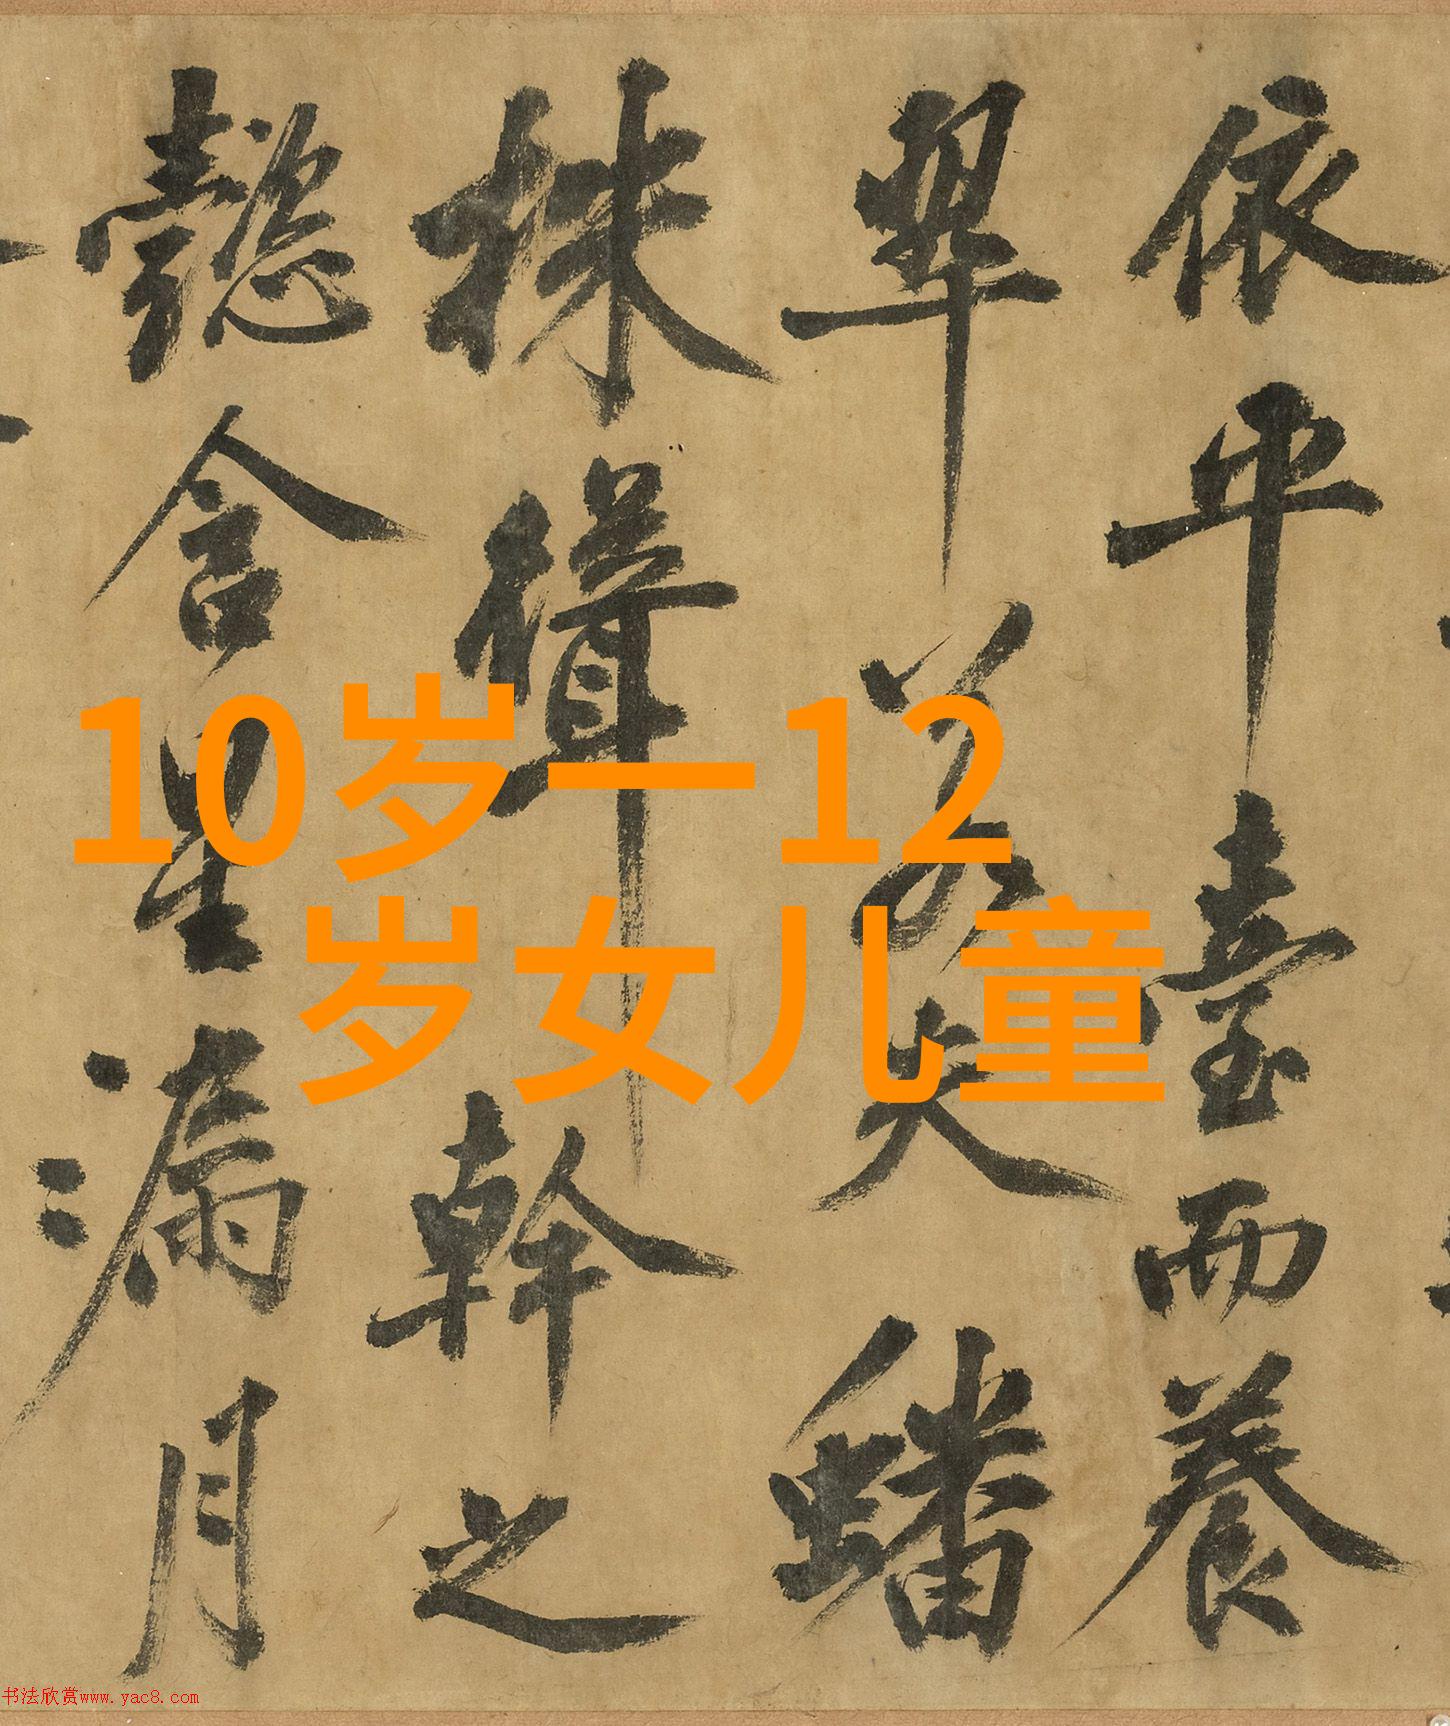 依平臺而養
翠若夫蟠
株緝幹之
懿含星漏月
10岁一12
岁女儿童
书法欣赏www.yac8.com